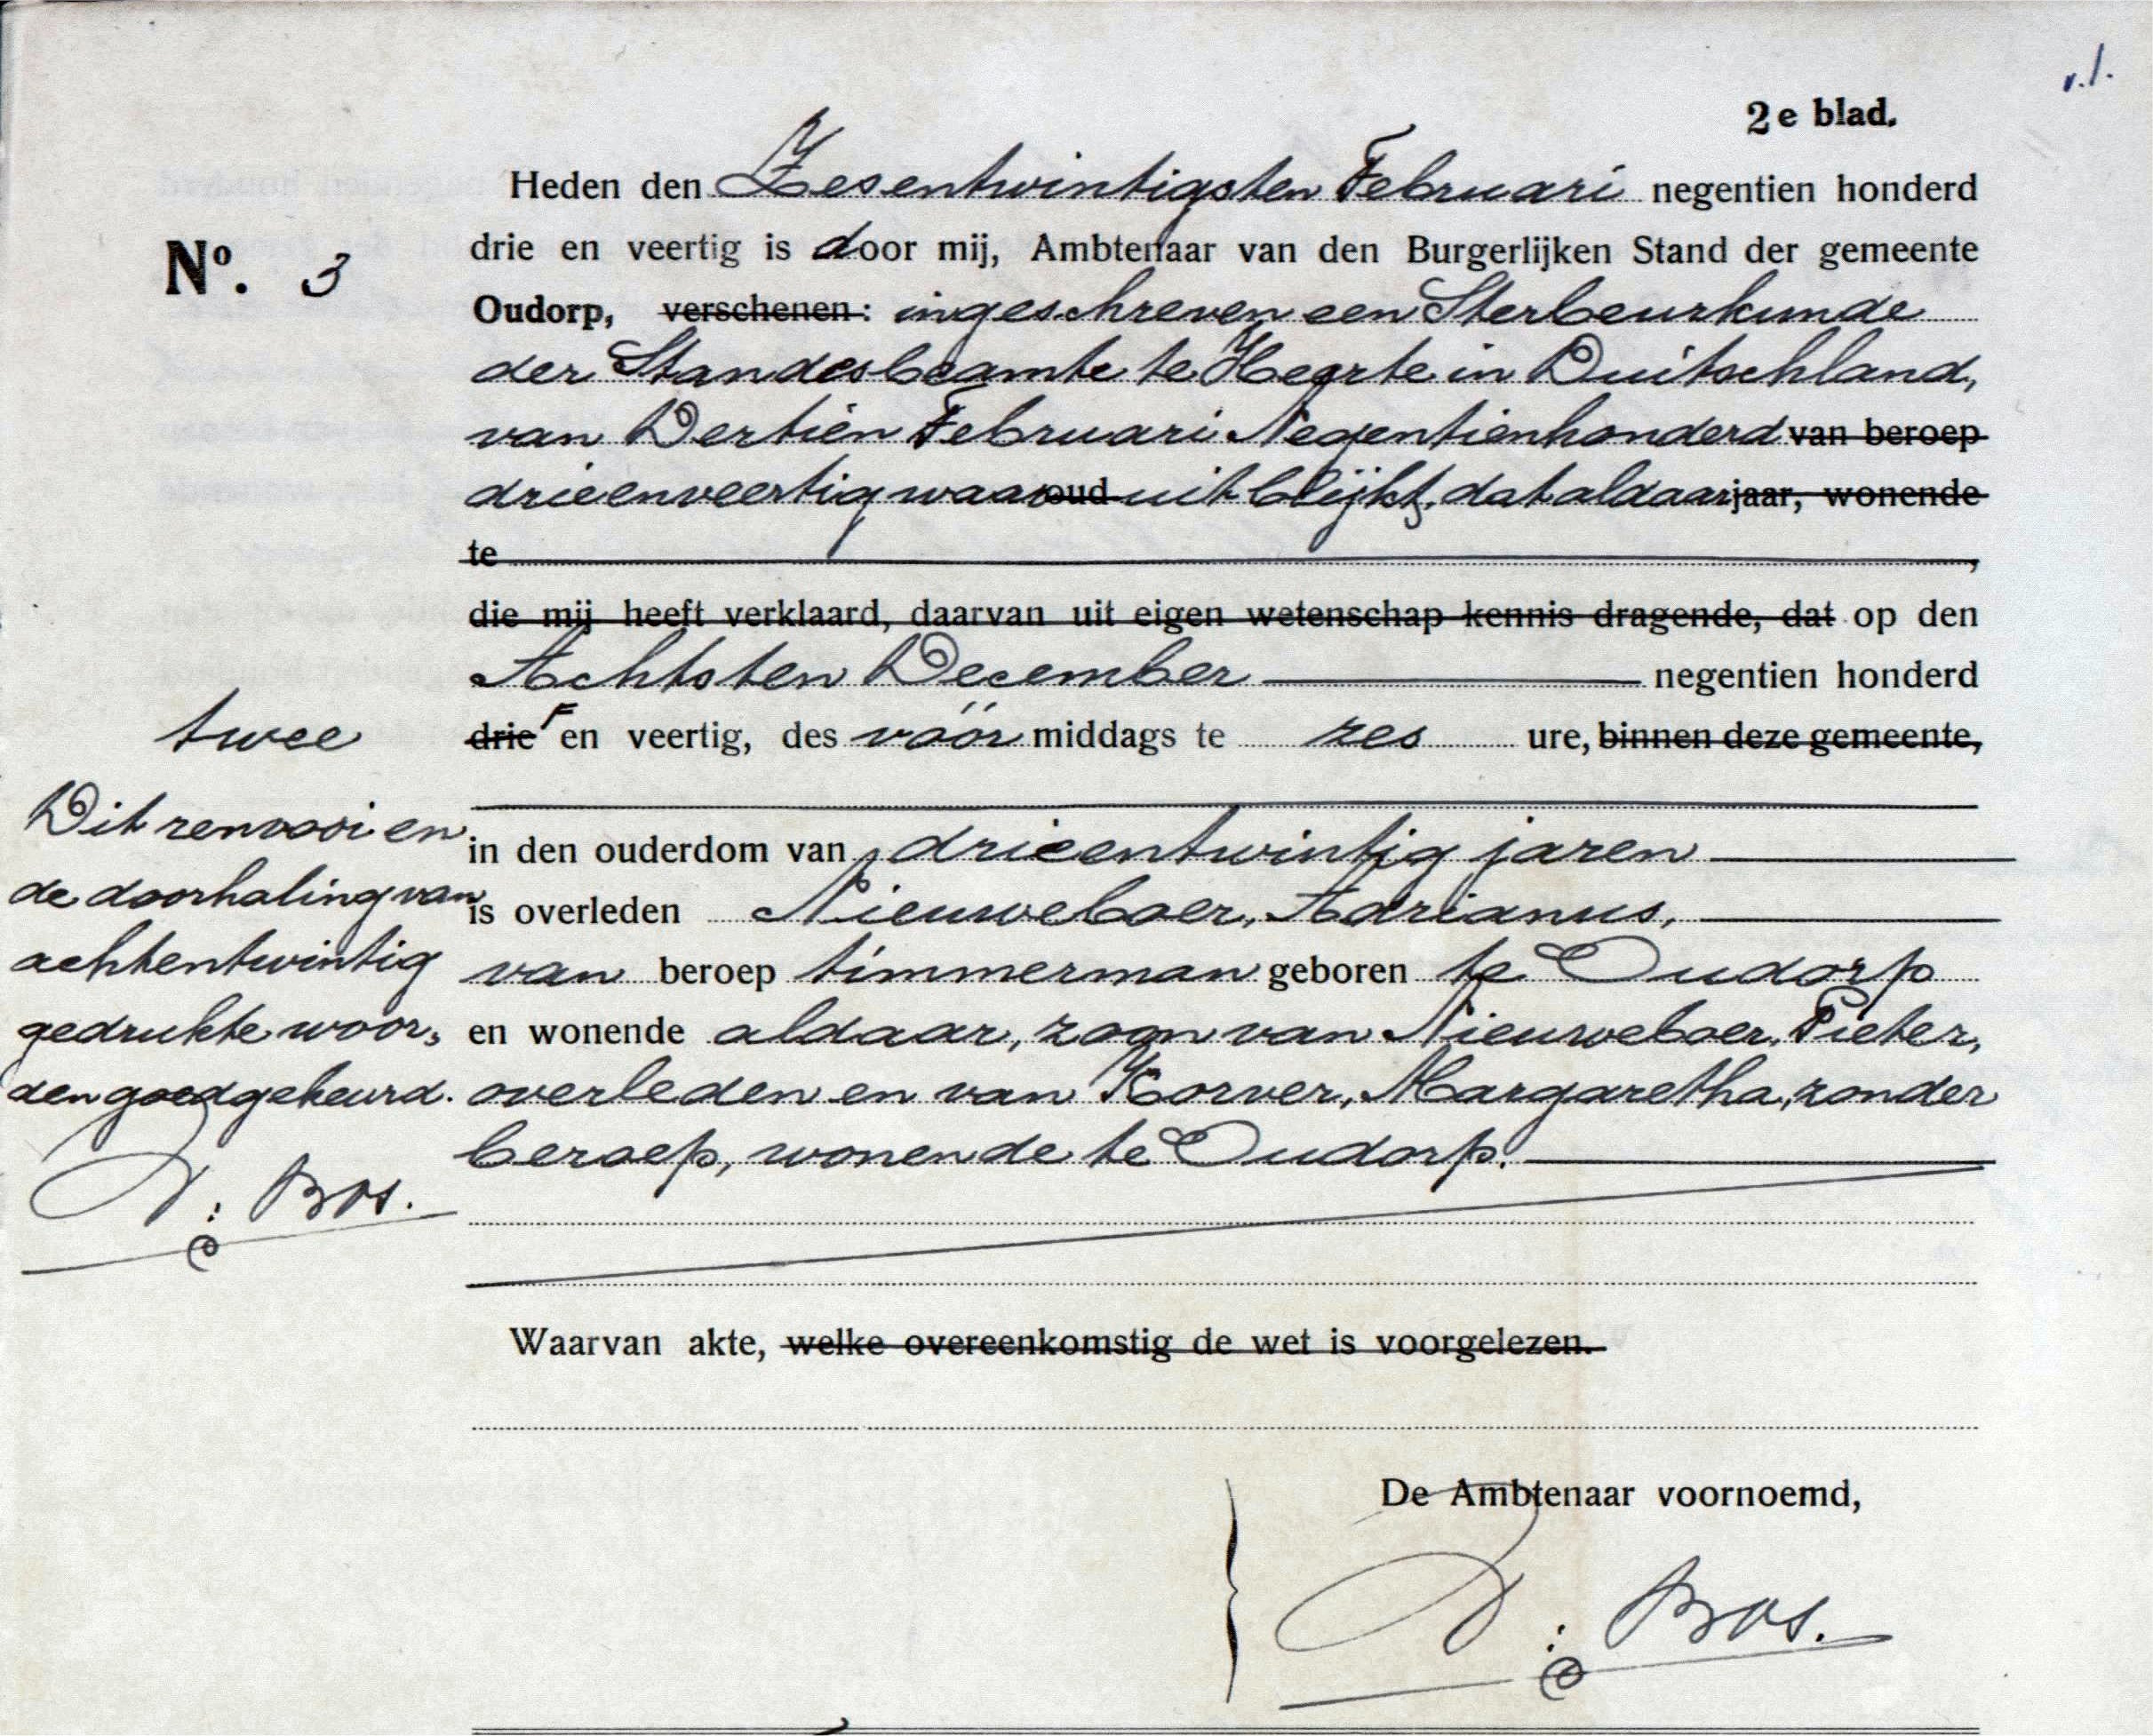 v.1.
2e blad.
Heden den Zesentwintigsten Februari negentien honderd
No. 3
drie en veertig is door mij, Ambtenaar van den Burgerlijken Stand der gemeente
Oudorp, verschenen: ingeschreven een Sterbeurkunde
der Standesbeamte te Heerte in Duitschland,
van Dertien Februari Negentienhonderd van beroep
drieenveertig waar oud uit blijkt, dat aldaar jaar, wonende
te ,
die mij heeft verklaard, daarvan uit eigen wetenschap kennis dragende, dat op den
Achtsten December negentien honderd
twee
drie en veertig, des vóór middags te zes ure, binnen deze gemeente,
Dit renvooi en
de doorhaling van
achtentwintig
gedrukte woor-
den goedgekeurd.
D: Bos.
in den ouderdom van drieentwintig jaren
is overleden Nieuweboer, Adrianus,
van beroep timmerman geboren te Oudorp
en wonende aldaar, zoon van Nieuweboer, Pieter,
overleden en van Korver, Margaretha, zonder
beroep, wonende te Oudorp.
Waarvan akte, welke overeenkomstig de wet is voorgelezen.
De Ambtenaar voornoemd,
D: Bos.